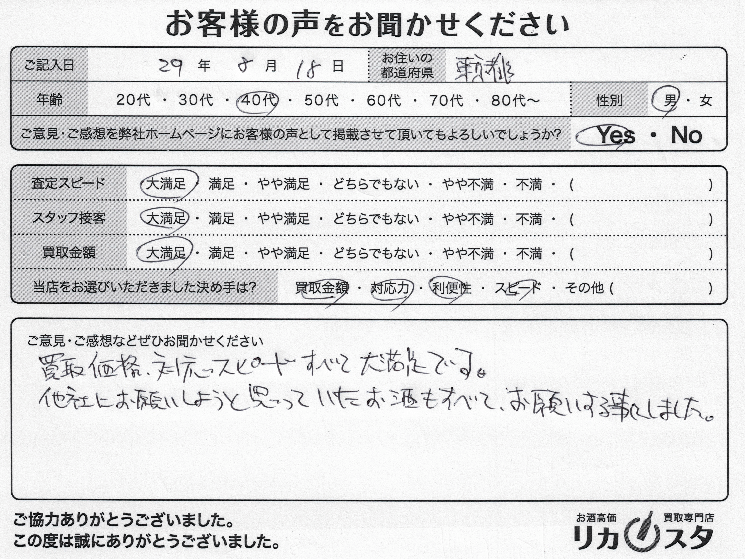 お客様の声をお聞かせください
ご記入日 29 年 8 月 18 日 お住いの都道府県 東京都
年齢 20代 ・ 30代 ・ 40代 ・ 50代 ・ 60代 ・ 70代 ・ 80代〜 性別 男 ・ 女
ご意見・ご感想を弊社ホームページにお客様の声として掲載させて頂いてもよろしいでしょうか? Yes ・ No
査定スピード 大満足 ・ 満足 ・ やや満足 ・ どちらでもない ・ やや不満 ・ 不満 ・ ( )
スタッフ接客 大満足 ・ 満足 ・ やや満足 ・ どちらでもない ・ やや不満 ・ 不満 ・ ( )
買取金額 大満足 ・ 満足 ・ やや満足 ・ どちらでもない ・ やや不満 ・ 不満 ・ ( )
当店をお選びいただきました決め手は? 買取金額 ・ 対応力 ・ 利便性 ・ スピード ・ その他 ( )
ご意見・ご感想などぜひお聞かせください
買取価格、対応、スピードすべて大満足です。
他社にお願いしようと思っていたお酒もすべて、お願いする事にしました。
ご協力ありがとうございました。
この度は誠にありがとうございました。
お酒高価 買取専門店
リカスタ